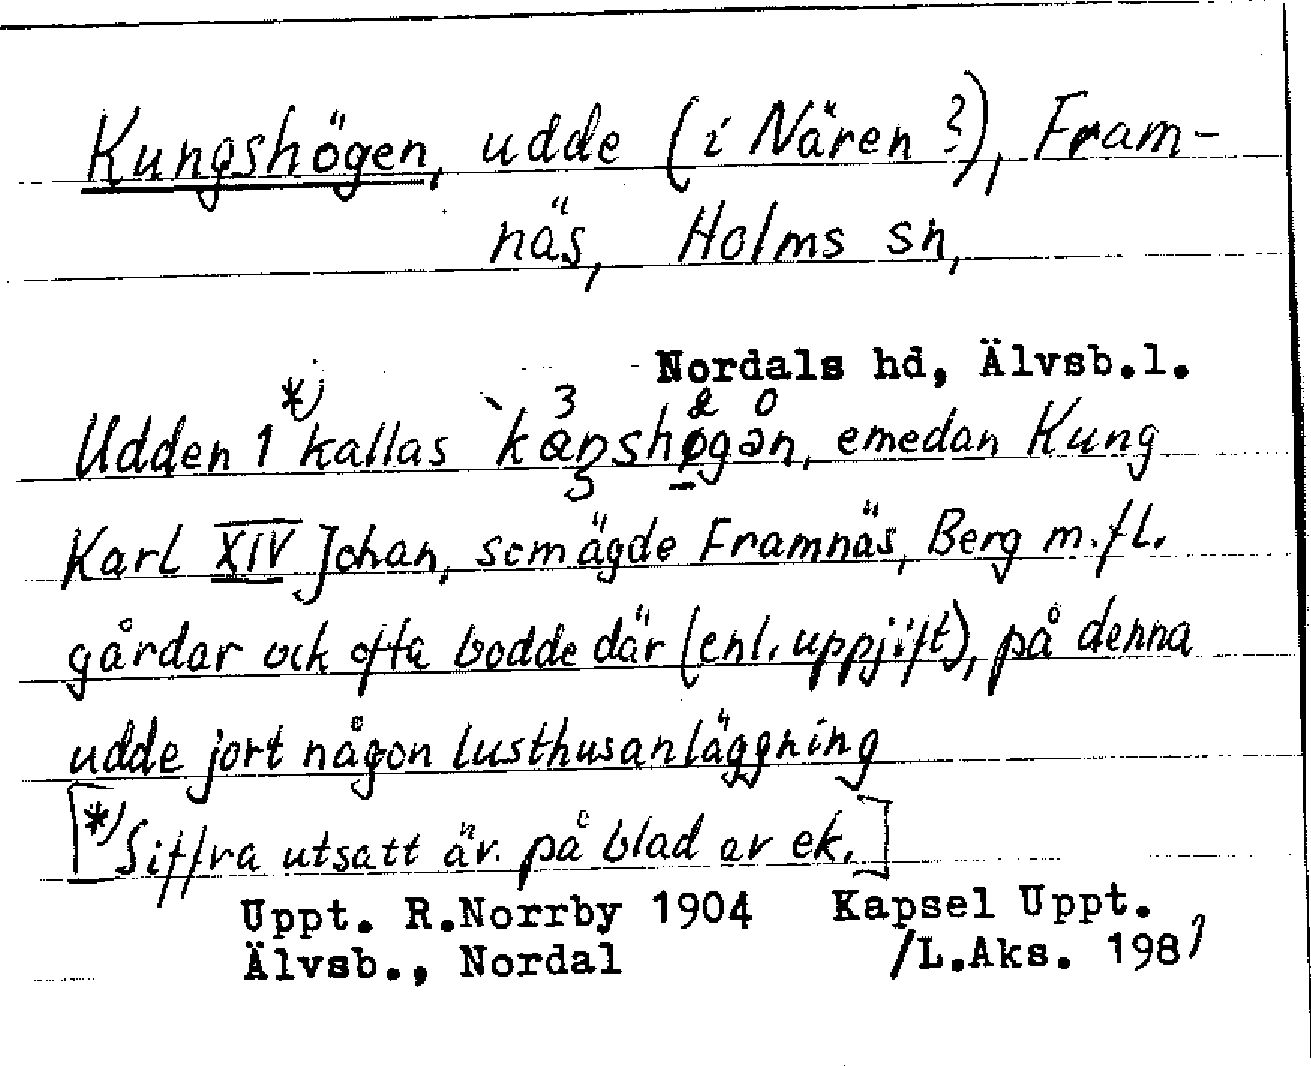 Kungshögen, udde (i Nären?), Fram-
näs, Holms sn,
Nordals hd, Älvsb.l.
Udden 1 *) kallas `kɵŋshøgən, emedan Kung
3 2 0
Karl XIV Johan, som ägde Framnäs, Berg m.fl.
gårdar ock ofta bodde där (enl. uppjift), på denna
udde jort någon lusthusanläggning
[*) Siffra utsatt är. på blad av ek.]
Uppt. R.Norrby 1904 Kapsel Uppt.
Älvsb., Nordal /L.Aks. 1981